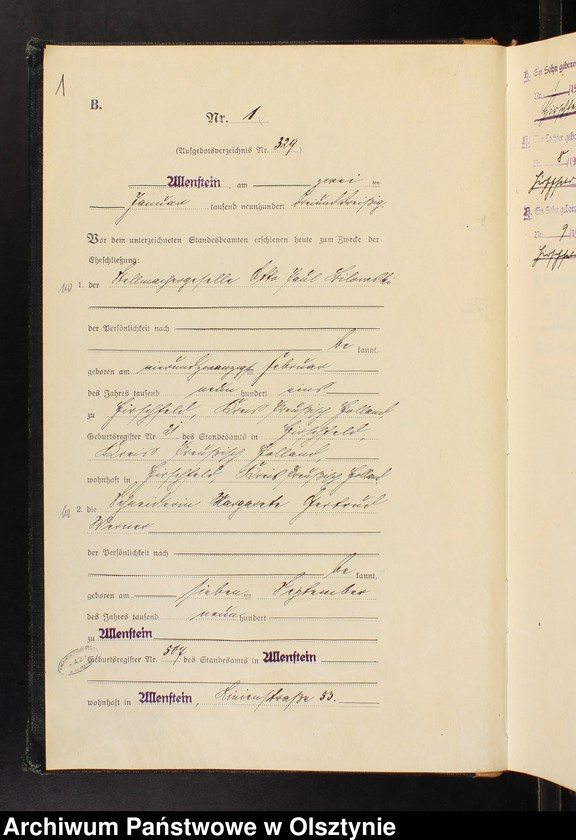 1
B.
Nr. 1
(Aufgebotsverzeichnis Nr. 329)
Allenstein, am zwei ten
Januar tausend neunhundert dreiunddreißig.
Vor dem unterzeichneten Standesbeamten erschienen heute zum Zwecke der
Eheschließung:
1. der Stellmachergeselle Otto Paul
der Persönlichkeit nach
be kannt,
geboren am vierundzwanzigsten Februar
des Jahres tausend neun hundert eins
zu Hirschfeld, Kreis Preußisch Holland
Geburtsregister Nr. 21 des Standesamts in Hirschfeld,
Kreis Preußisch Holland
wohnhaft in Hirschfeld, Kreis Preußisch Holland
2. die Schneiderin Margarete Gertrud
Werner
der Persönlichkeit nach
be kannt,
geboren am sieben ten September
des Jahres tausend neun hundert
zu Allenstein
Geburtsregister Nr. 507 des Standesamts in Allenstein
wohnhaft in Allenstein, Linienstraße 53.
Ein Sohn geboren
Nr. 1 /19
Nr. 8 /19
Ein Sohn geboren
Nr. 9 /19
Archiwum Państwowe w Olsztynie